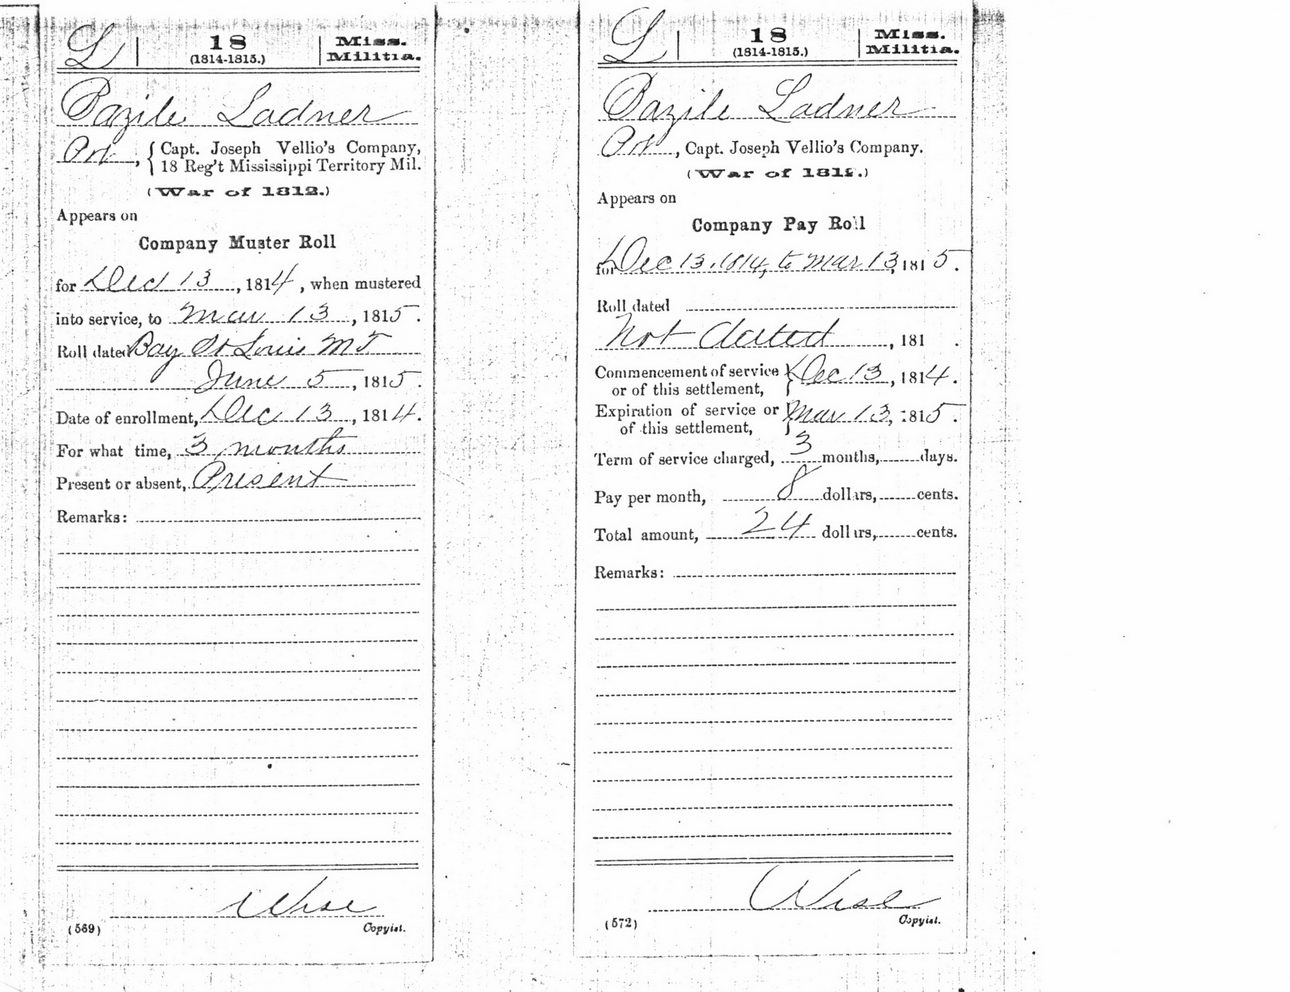 L 18 Miss.
(1814-1815.) Militia.
Bazile Ladner
Pvt, { Capt. Joseph Vellio's Company,
18 Reg't Mississippi Territory Mil.
(War of 1812.)
Appears on
Company Muster Roll
for Dec 13, 1814, when mustered
into service, to Mar 13, 1815.
Roll dated Bay St Louis M T
June 5, 1815.
Date of enrollment, Dec 13, 1814.
For what time, 3 months
Present or absent, Present
Remarks:
Wise
(569) Copyist.
L 18 Miss.
(1814-1815.) Militia.
Bazile Ladner
Pvt, Capt. Joseph Vellio's Company.
(War of 1812.)
Appears on
Company Pay Roll
for Dec 13, 1814, to Mar 13, 1815.
Roll dated
Not dated, 181 .
Commencement of service } Dec 13, 1814.
or of this settlement,
Expiration of service or } Mar 13, 1815.
of this settlement,
Term of service charged, 3 months, days.
Pay per month, 8 dollars, cents.
Total amount, 24 dollars, cents.
Remarks:
Wise
(572) Copyist.